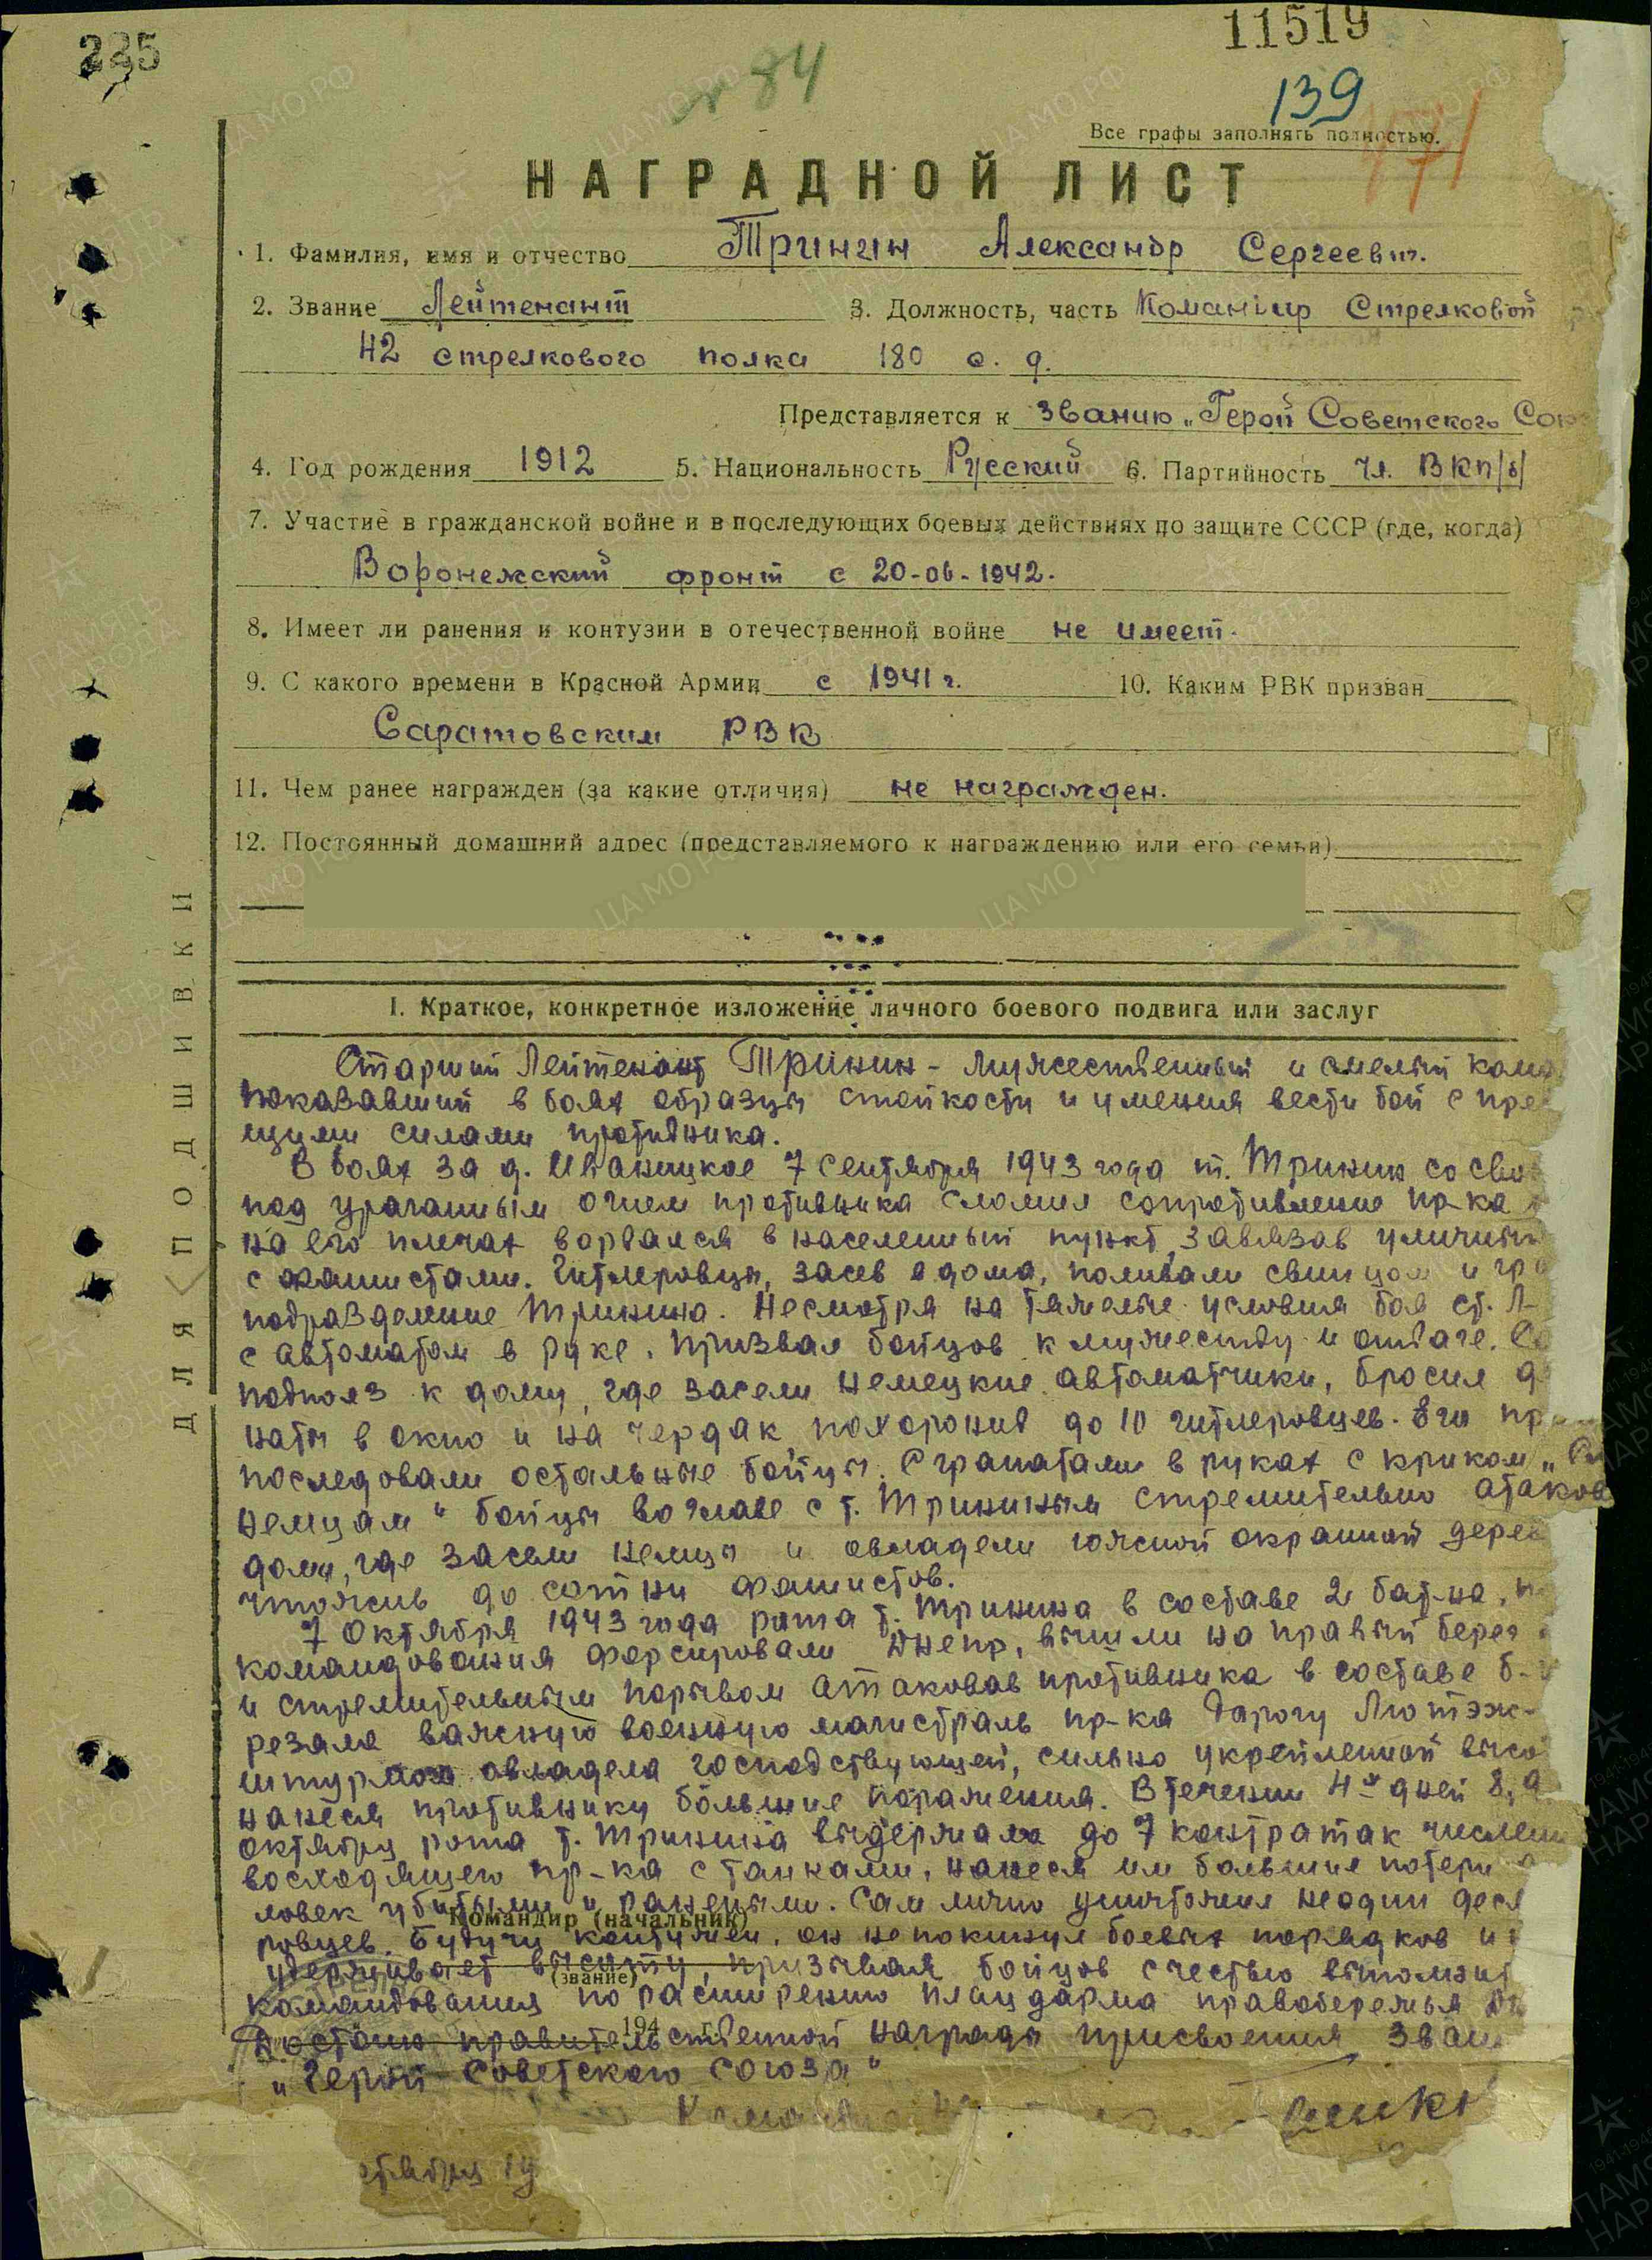 225
11519
84
139
Все графы заполнять полностью.
НАГРАДНОЙ ЛИСТ
1. Фамилия, имя и отчество Тринин Александр Сергеевич.
2. Звание Лейтенант 3. Должность, часть Командир Стрелковой
42 стрелкового полка 180 с. д.
Представляется к званию „Герой Советского Союз
4. Год рождения 1912 5. Национальность Русский 6. Партийность чл. ВКП/б/
7. Участие в гражданской войне и в последующих боевых действиях по защите СССР (где, когда)
Воронежский фронт с 20-06-1942.
8. Имеет ли ранения и контузии в отечественной войне не имеет.
9. С какого времени в Красной Армии с 1941 г. 10. Каким РВК призван
Саратовским РВК
11. Чем ранее награжден (за какие отличия) не награжден.
12. Постоянный домашний адрес (представляемого к награждению или его семьи)
ДЛЯ ПОДШИВКИ
I. Краткое, конкретное изложение личного боевого подвига или заслуг
Старший Лейтенант Тринин - мужественный и смелый кома
показавший в боях образцы стойкости и умения вести бой с пре
щими силами противника.
В боях за д. Иваницкое 7 сентября 1943 года т. Тринин со сво
под ураганным огнем противника сломил сопротивление пр-ка
на его плечах ворвался в населенный пункт, завязав уличный
с фашистами. Гитлеровцы, засев в дома, поливали свинцом и гра
подразделение Тринина. Несмотря на тяжелые условия боя ст. Л-
с автоматом в руке, призвал бойцов к мужеству и отваге. Са
подполз к дому, где засели немецкие автоматчики, бросил
наты в окно и на чердак похоронив до 10 гитлеровцев. Его пр
последовали остальные бойцы. С гранатами в руках с криком „
немцам" бойцы во главе с т. Трининым стремительно атаков
дома, где засели немцы и овладели южной окраиной дерев
чтожив до сотни фашистов.
7 Октября 1943 года рота т. Тринина в составе 2 бат-на,
командования форсировали Днепр, вышли на правый берег
и стремительным порывом атаковав противника в составе б-
резала важную военную магистраль пр-ка дорогу Лютэж-
штурмом овладела господствующей, сильно укрепленной высо
нанеся противнику большие поражения. В течении 4х дней 8, 9
октября рота т. Тринина выдержала до 7 контратак числен
восходящего пр-ка с танками, нанеся им большие потери
ловек убитыми и ранеными. Сам лично уничтожил не один деся
Командир (начальник)
ровцев. Будучи контужен, он не покинул боевых порядков и
удерживает высоту, призывая бойцов с честью выполнит
(звание)
командования по расширению плацдарма правобережья
194 г.
Достоин правительственной награды присвоения зван
„Герой Советского Союза"